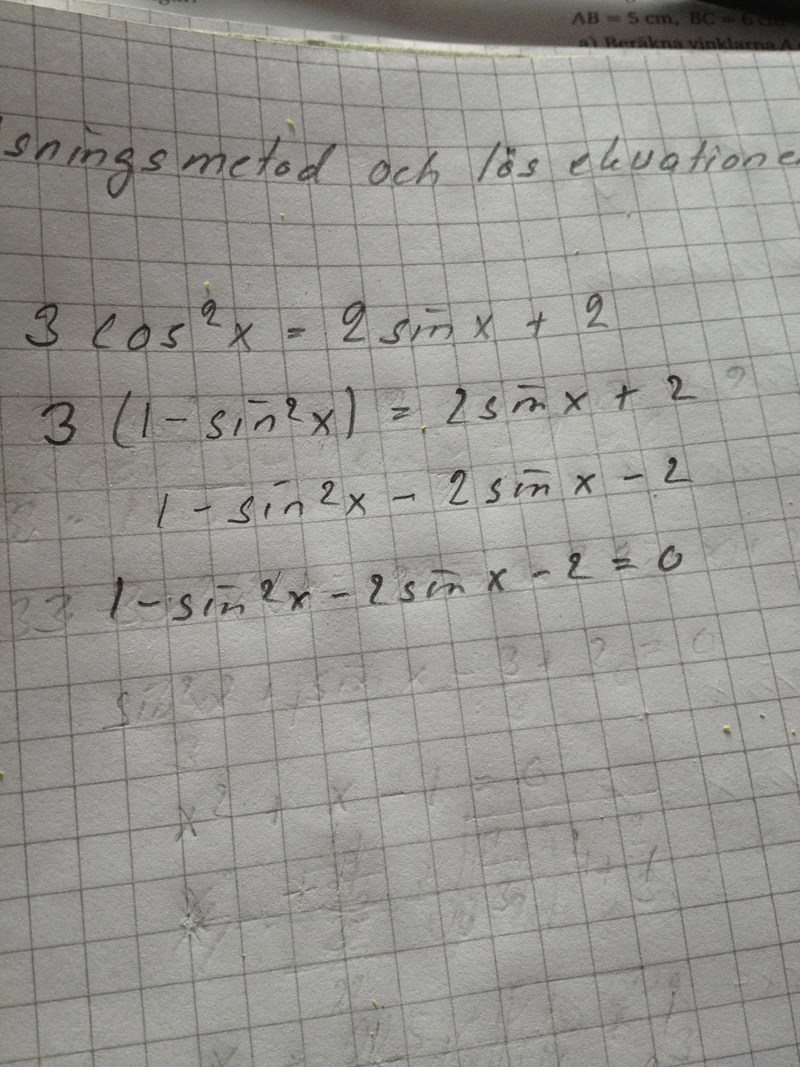 AB = 5 cm, BC = 6
a) Beräkna vinklarna A
sningsmetod och lös ekvatione
3 cos²x = 2 sin x + 2
3 (1 - sin²x) = 2 sin x + 2 ?
1 - sin²x - 2 sin x - 2
1 - sin²x - 2 sin x - 2 = 0
sin²x + sin x - 3 + 2 = 0
x² + x - 1 = 0